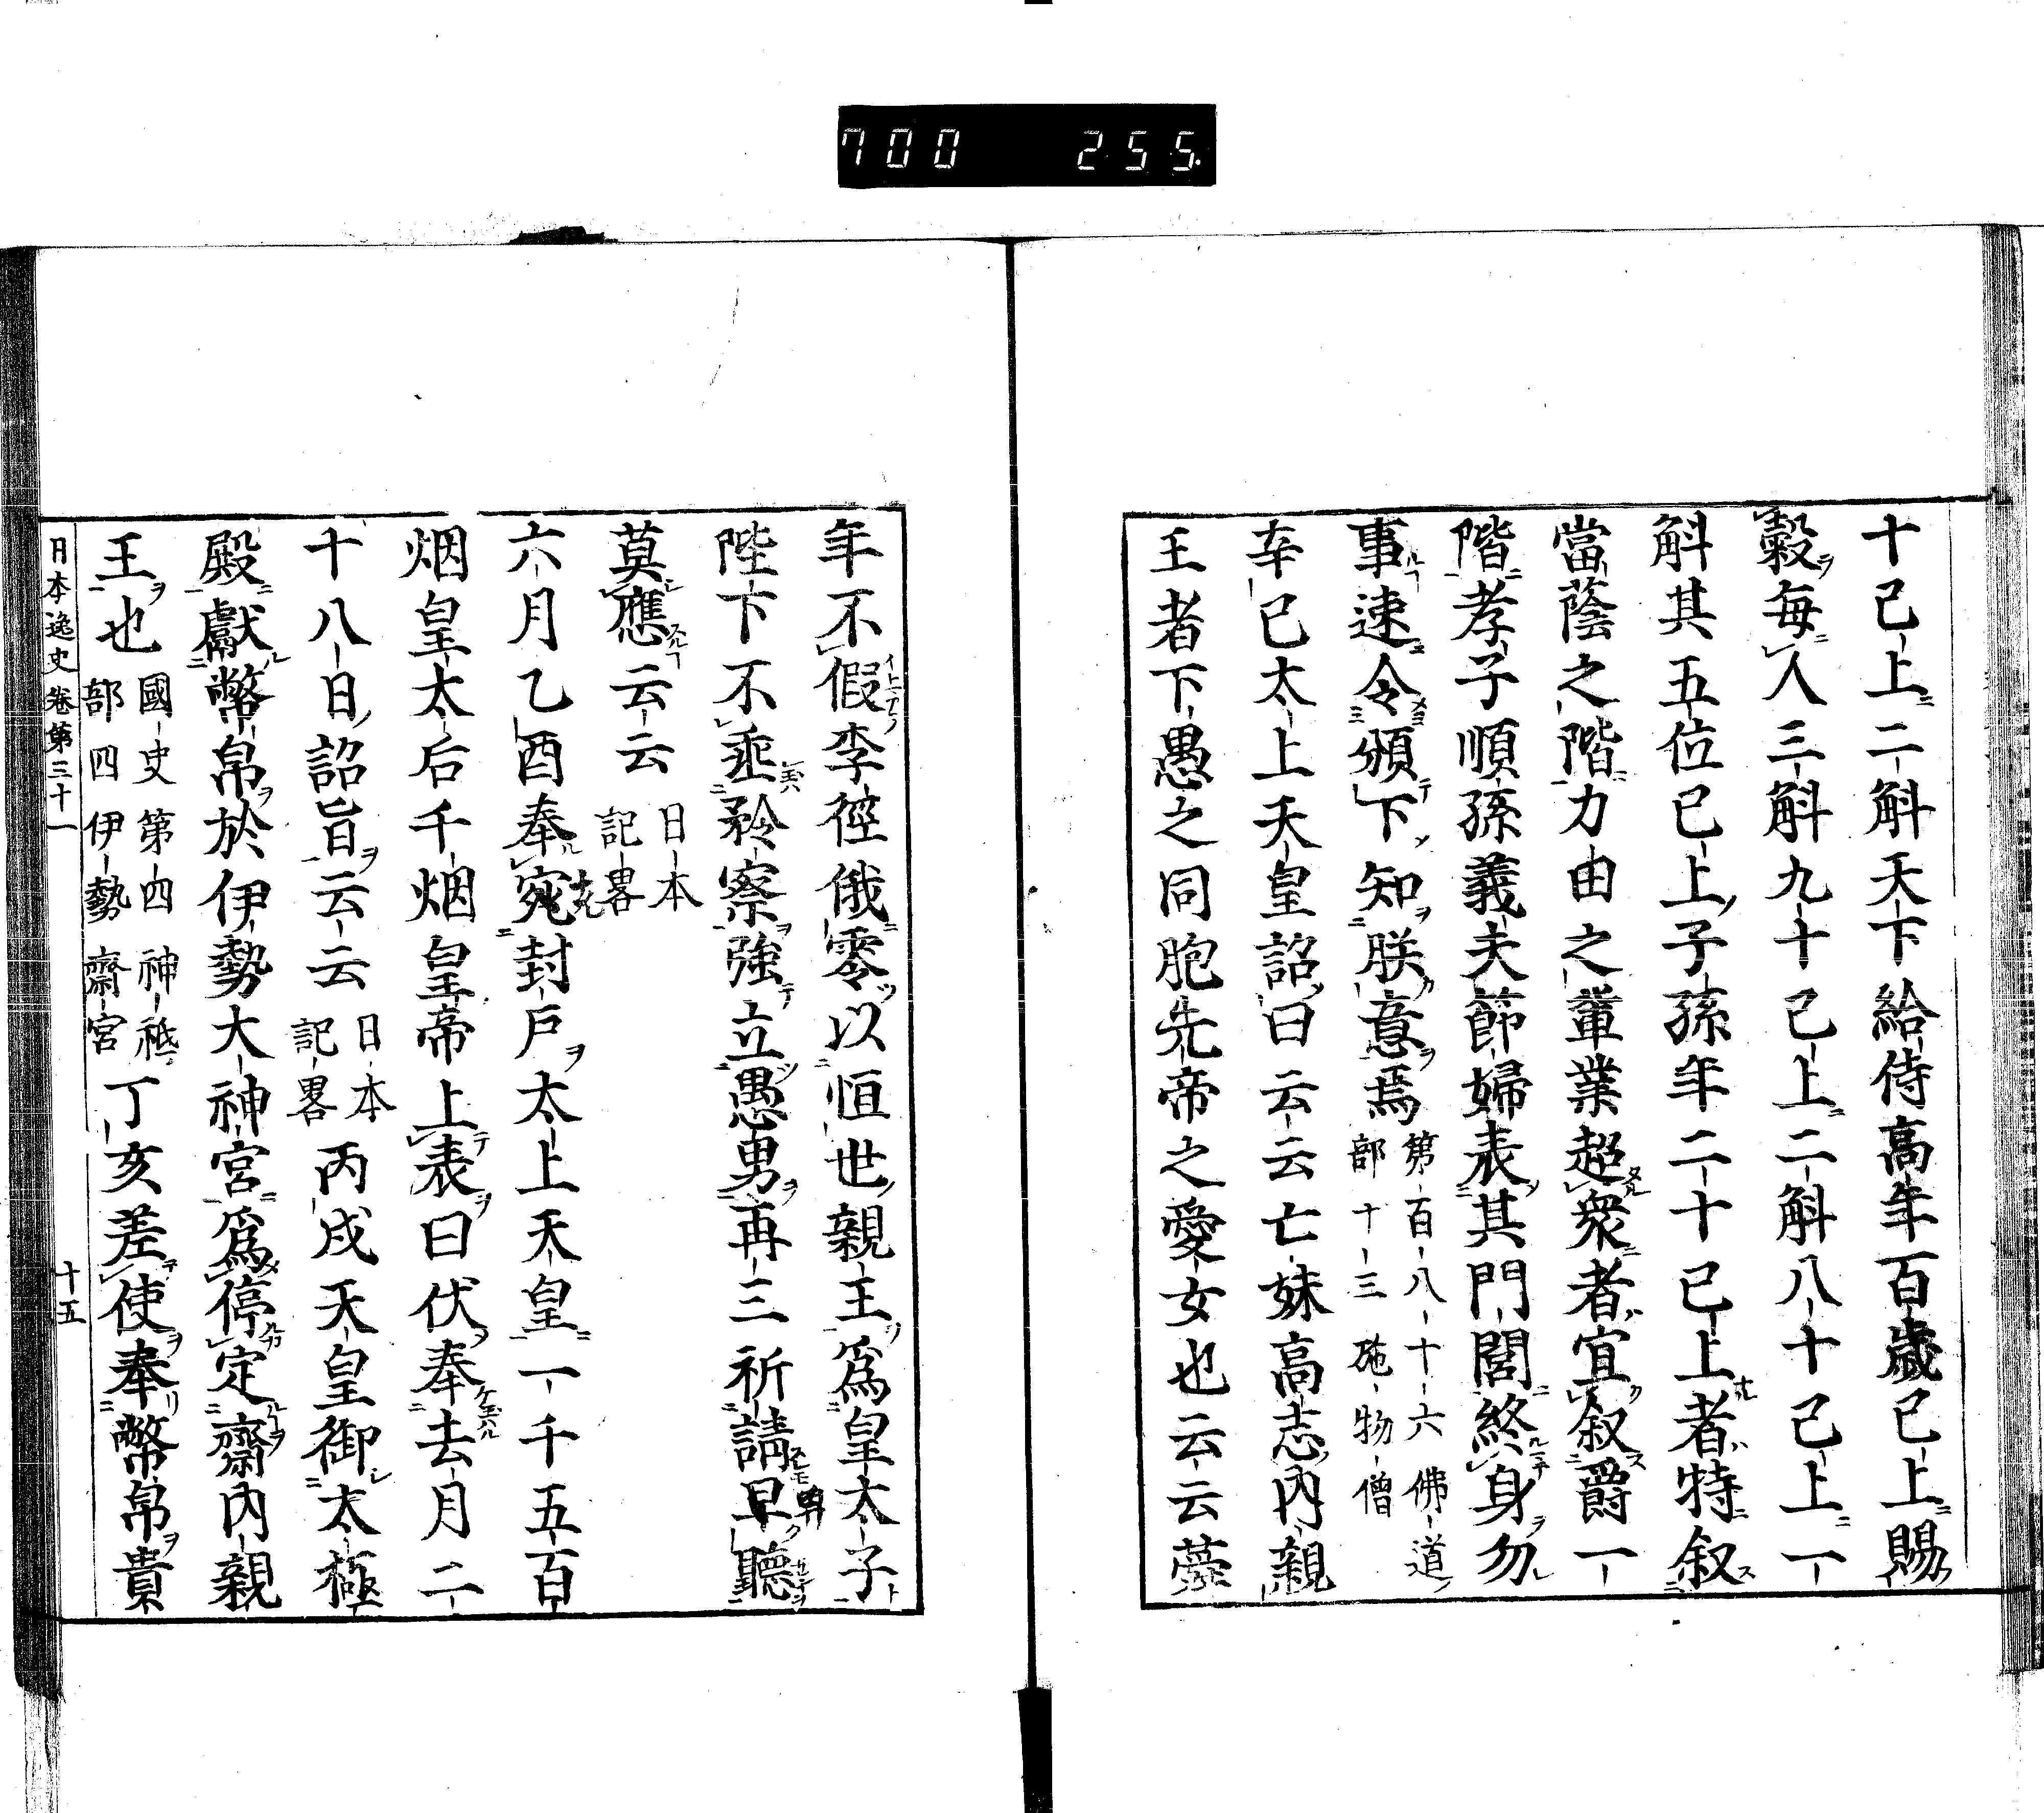 700 255
十已上二斛天下給侍高年百歳已上賜
穀毎人三斛九十已上二斛八十已上一
斛其五位已上子孫年二十已上者特叙
當蔭之階力由之輩業超衆者宜叙爵一
階孝子順孫義夫節婦表其門閭終身勿
事速令頒下知朕意焉 第百八十六佛道部十三施物僧
辛巳太上天皇詔曰云云亡妹高志内親
王者下愚之同胞先帝之愛女也云云薨
年不假李徑俄零以恒世親王爲皇太子
陛下不垂矜察強立愚男再三祈請早聽
莫應云云 日本記畧
六月乙酉奉宛封戸太上天皇一千五百
烟皇太后千烟皇帝上表曰伏奉去月二
十八日詔旨云云 日本記畧 丙戌天皇御太極
殿獻幣帛於伊勢大神宮爲停定齋内親
王也 國史第四神祗部四伊勢齋宮 丁亥差使奉幣帛貴
日本逸史卷第三十一 十五